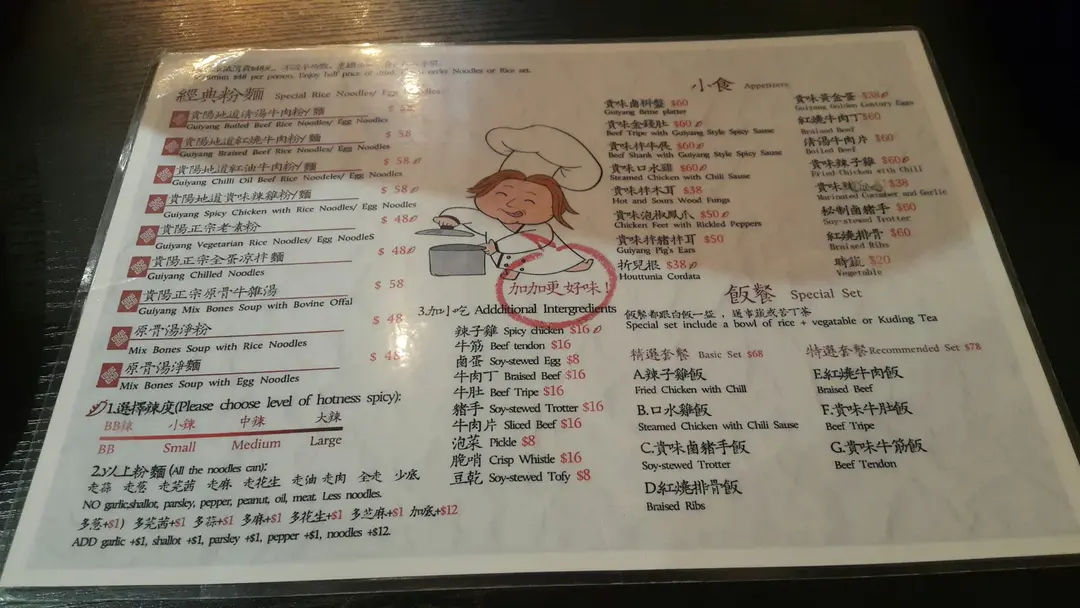 minimum $48 per person. Enjoy half price of drink
Noodles or Rice set.
經典粉麵 Special Rice Noodles/ Egg Noodles
貴陽地道清湯牛肉粉/麵
Guiyang Boiled Beef Rice Noodles/ Egg Noodles
貴陽地道紅燒牛肉粉/麵 $ 58
Guiyang Braised Beef Rice Noodles/ Egg Noodles
貴陽地道紅油牛肉粉/麵 $ 58
Guiyang Chilli Oil Beef Rice Noodeles/ Egg Noodels
貴陽地道貴味辣雞粉/麵 $ 58
Guiyang Spicy Chicken with Rice Noodles/ Egg Noodles
貴陽正宗老素粉 $ 48
Guiyang Vegetarian Rice Noodles/ Egg NoodleS
貴陽正宗全蛋凉拌麵 $ 48
Guiyang Chilled Noodles
貴陽正宗原骨牛雜湯 $ 58
Guiyang Mix Bones Soup with Bovine Offal
原骨湯淨粉 $ 48
Mix Bones Soup with Rice Noodles
原骨湯淨麵 $ 48
Mix Bones Soup with Egg Noodles
1.選擇辣度(Please choose level of hotness spicy):
BB辣 小辣 中辣 大辣
BB Small Medium Large
2.以上粉麵 (All the noodles can):
走蒜 走葱 走芫茜 走麻 走花生 走油 走肉 全走 少底
NO garlic,shallot, parsley, pepper, peanut, oil, meat. Less noodles.
多葱+$1) 多芫茜+$1 多蒜+$1 多麻+$1 多花生+$1 多芝麻+$1 加底+$12
ADD garlic +$1, shallot +$1, parsley +$1, pepper +$1, noodles +$12.
加加更好味!
3.加小吃 Addditional Intergredients
辣子雞 Spicy chicken $16
牛筋 Beef tendon $16
鹵蛋 Soy-stewed Egg $8
牛肉丁 Braised Beef $16
牛肚 Beef Tripe $16
豬手 Soy-stewed Trotter $16
牛肉片 Sliced Beef $16
泡菜 Pickle $8
脆哨 Crisp Whistle $16
豆乾 Soy-stewed Tofy $8
小食 Appetizers
貴味鹵料盤 $60
Guiyang Brine platter
貴味金錢肚 $60
Beef Tripe with Guiyang Style Spicy Sauce
貴味拌牛展 $60
Beef Shank with Guiyang Style Spicy Sauce
貴味口水雞 $60
Steamed Chicken with Chili Sauce
貴味拌木耳 $38
Hot and Sours Wood Fungs
貴味泡椒鳳爪 $50
Chicken Feet with Rickled Peppers
貴味拌豬拌耳 $50
Guiyang Pig's Ears
折兒根 $38
Houttunia Cordata
貴味黃金蛋 $38
Guiyang Golden Century Eggs
紅燒牛肉丁 $60
Braised Beef
清湯牛肉片 $60
Boiled Beef
貴味辣子雞 $60
Fried Chicken with Chili
貴味 $38
Marinated Cucumber and Garlic
秘制鹵豬手 $60
Soy-stewed Trotter
紅燒排骨 $60
Braised Ribs
時蔬 $20
Vegetable
飯餐 Special Set
飯餐都跟白飯一盅，週車蔬或苦丁茶
Special set include a bowl of rice + vegatable or Kuding Tea
精選套餐 Basic Set $68
A.辣子雞飯
Fried Chicken with Chill
B.口水雞飯
Steamed Chicken with Chili Sauce
C.貴味鹵豬手飯
Soy-stewed Trotter
D.紅燒排骨飯
Braised Ribs
特選套餐 Recommended Set $78
E.紅燒牛肉飯
Braised Beef
F.貴味牛肚飯
Beef Tripe
G.貴味牛筋飯
Beef Tendon